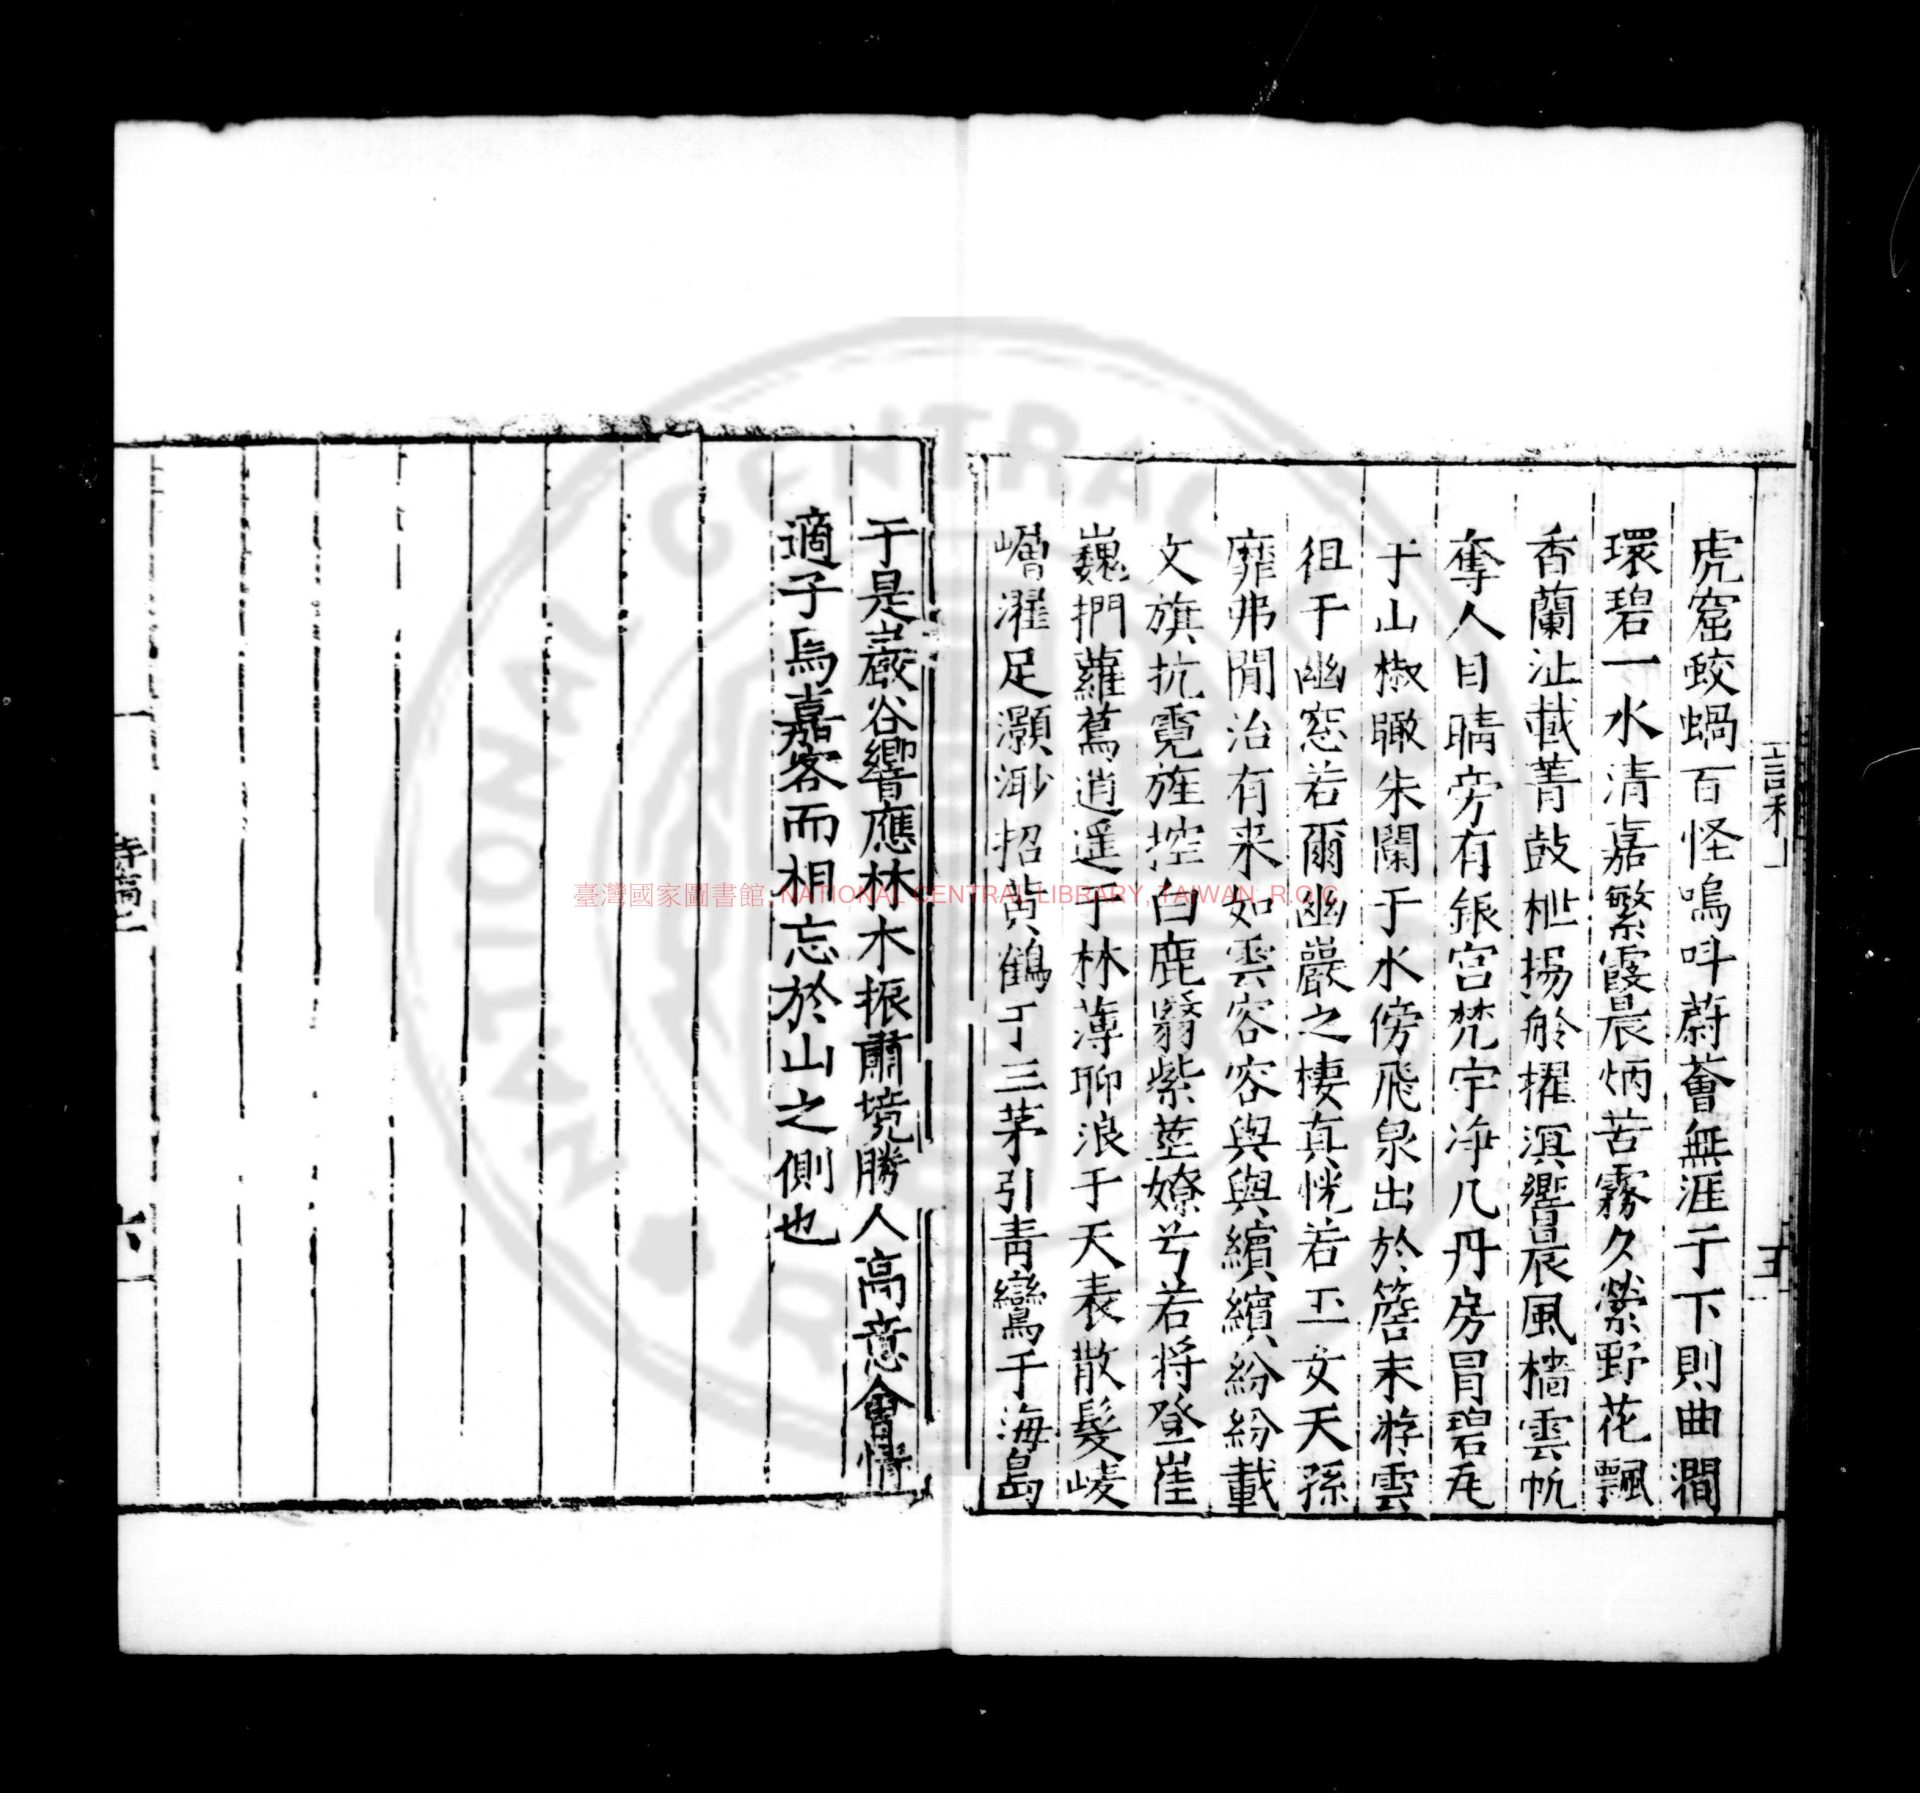 虎窟蛟蝸百怪嗚呌蔚薈無涯于下則曲澗
環碧一水清嘉繁霞晨炳苦霧久縈野花飄
香蘭沚載菁鼓枻揚舲擢溟響晨風檣雲帆
奪人目睛旁有銀宮梵宇净几丹房冒碧瓦
于山椒瞰朱闌于水傍飛泉出於簷末游雲
徂于幽窓若爾幽巖之棲真恍若玉女天孫
靡弗閒治有来如雲容容與與繽繽紛紛載
文旗抗霓旌控白鹿翳紫莖嫽兮若将登崔
巍捫蘿蔦逍遥于林薄聊浪于天表散髮崚
嶒濯足灝渺招黄鶴于三茅引青鸞于海島
于是巖谷響應林木振肅境勝人高意會情
適子焉嘉客而相忘於山之側也
六
臺灣國家圖書館, NATIONAL CENTRAL LIBRARY, TAIWAN, R.O.C.